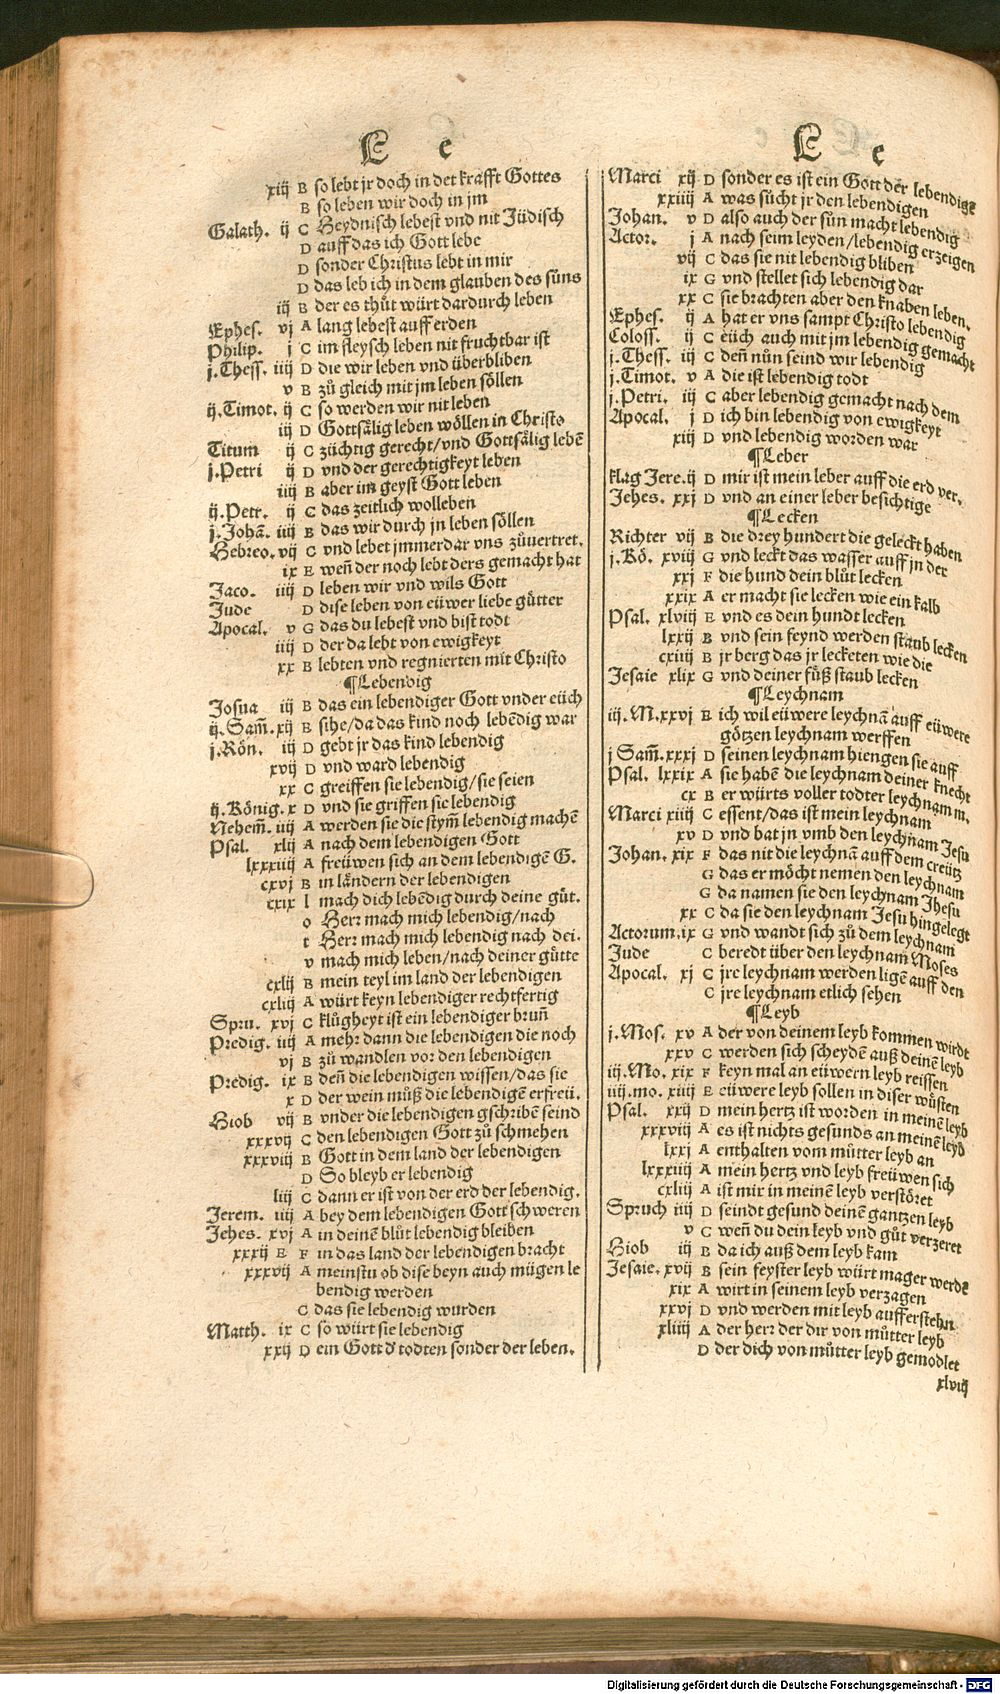 L e
xiij B so lebt jr doch in det krafft Gottes
B so leben wir doch in jm
Galath. ij C Heydnisch lebest vnd nit Jüdisch
D auff das ich Gott lebe
D sonder Christus lebt in mir
D das leb ich in dem glauben des suns
iij B der es thůt würt dardurch leben
Ephes. vj A lang lebest auff erden
Philip. j C im fleysch leben nit fruchtbar ist
j.Thess. iiij D die wir leben vnd überbliben
v B zů gleich mit jm leben söllen
ij.Timot. ij C so werden wir nit leben
iij D Gottsälig leben wöllen in Christo
Titum ij C züchtig gerecht/vnd Gottsälig lebē
j.Petri ij D vnd der gerechtigkeyt leben
iiij B aber im geyst Gott leben
ij.Petr. ij C das zeitlich wolleben
j.Johā. iiij B das wir durch jn leben söllen
Hebreo. vij C vnd lebet jmmerdar vns zůuertret.
ix E weñ der noch lebt ders gemacht hat
Jaco. iiij D leben wir vnd wils Gott
Jude D dise leben von eüwer liebe gůtter
Apocal. v G das du lebest vnd bist todt
iiij D der da lebt von ewigkeyt
xx B lebten vnd regnierten mit Christo
¶Lebendig
Josua iij B das ein lebendiger Gott vnder eüch
ij.Sam̄. xij E sihe/da das kind noch lebēdig war
j.Kön. iij D gebt jr das kind lebendig
xvij D vnd ward lebendig
xx C greiffen sie lebendig/sie seien
ij.König. x D vnd sie griffen sie lebendig
Nehem̄. iiij A werden sie die stym̄ lebendig machē
Psal. xlij A nach dem lebendigen Gott
lxxxiiij A freüwen sich an dem lebendigē G.
cxvj B in ländern der lebendigen
cxix l mach dich lebēdig durch deine gůt.
o Herr mach mich lebendig/nach
t Herr mach mich lebendig nach dei.
v mach mich leben/nach deiner gůtte
cxlij B mein teyl im land der lebendigen
cxliij A würt keyn lebendiger rechtfertig
Spru. xvj C klůgheyt ist ein lebendiger bruñ
Predig. iiij A mehr dann die lebendigen die noch
vj B zů wandlen vor den lebendigen
Predig. ix B deñ die lebendigen wissen/das sie
x D der wein můß die lebendigē erfreü.
Hiob vij B vnder die lebendigen gschribē seind
xxxvij C den lebendigen Gott zů schmehen
xxxviij B Gott in dem land der lebendigen
D So bleyb er lebendig
liij C dann er ist von der erd der lebendig.
Jerem. iiij A bey dem lebendigen Gott schweren
Jehes. xvj A in deinē blůt lebendig bleiben
xxxij E F in das land der lebendigen bracht
xxxvij A meinstu ob dise beyn auch mügen le
bendig werden
C das sie lebendig wurden
Matth. ix C so würt sie lebendig
xxij D ein Gott d' todten sonder der leben.
L e
Marci xij D sonder es ist ein Gott der lebendige
xxiiij A was sücht jr den lebendigen
Johan. v D also auch der sůn macht lebendig
Actor. j A nach seim leyden/lebendig erzeigen
vij C das sie nit lebendig bliben
ix G vnd stellet sich lebendig dar
xx C sie brachten aber den knaben leben.
Ephes. ij A hat er vns sampt Christo lebendig
Coloss. ij C eüch auch mit jm lebendig gemacht
j.Thess. iij C deñ nůn seind wir lebendig
j.Timot. v A die ist lebendig todt
j.Petri. iij C aber lebendig gemacht nach dem
Apocal. j D ich bin lebendig von ewigkeyt
xiij D vnd lebendig worden war
¶Leber
klag Jere. ij D mir ist mein leber auff die erd ver.
Jehes. xxj D vnd an einer leber besichtige
¶Lecken
Richter vij B die drey hundert die geleckt haben
j.Kö. xviij G vnd leckt das wasser auff in der
xxj F die hund dein blůt lecken
xxix A er macht sie lecken wie ein kalb
Psal. xlviij E vnd es dein hundt lecken
lxxij B vnd sein feynd werden staub lecken
cxiiij B jr berg das jr lecketen wie die
Jesaie xlix G vnd deiner fůß staub lecken
¶Leychnam
iij.M. xxvj E ich wil eüwere leychnā auff eüwere
götzen leychnam werffen
j Sam̄. xxxj D seinen leychnam hiengen sie auff
Psal. lxxix A sie habē die leychnam deiner knecht
cx B er würts voller todter leychnam m.
Marci xiiij C essent/das ist mein leychnam
xv D vnd bat jn vmb den leychnam Jesu
Johan. xix F das nit die leychnā auff dem creütz
G das er möcht nemen den leychnam
G da namen sie den leychnam Jhesu
xx C da sie den leychnam Jesu hingelegt
Actorum. ix G vnd wandt sich zů dem leychnam
Jude C beredt über den leychnam Moses
Apocal. xj C jre leychnam werden ligē auff den
C jre leychnam etlich sehen
¶Leyb
j.Mos. xv A der von deinem leyb kommen wirdt
xxv C werden sich scheydē auß deinē leyb
iij.Mo. xix F keyn mal an eüwern leyb reissen
iiij.mo. xiiij E eüwere leyb sollen in diser wůsten
Psal. xxij D mein hertz ist worden in meinē leyb
xxxviij A es ist nichts gesunds an meinē leyb
lxxj A enthalten vom můtter leyb an
lxxxiiij A mein hertz vnd leyb freüwen sich
cxliij A ist mir in meinē leyb verstöret
Spruch iiij D seindt gesund deinē gantzen leyb
v C weñ du dein leyb vnd gůt verzeret
Hiob iij B da ich auß dem leyb kam
Jesaie. xvij B sein feyster leyb würt mager werdē
xix A wirt in seinem leyb verzagen
xxvj D vnd werden mit leyb aufferstehn
xliiij A der herr der dir von můtter leyb
D der dich von můtter leyb gemodlet
xlviij
Digitalisierung gefördert durch die Deutsche Forschungsgemeinschaft - DFG